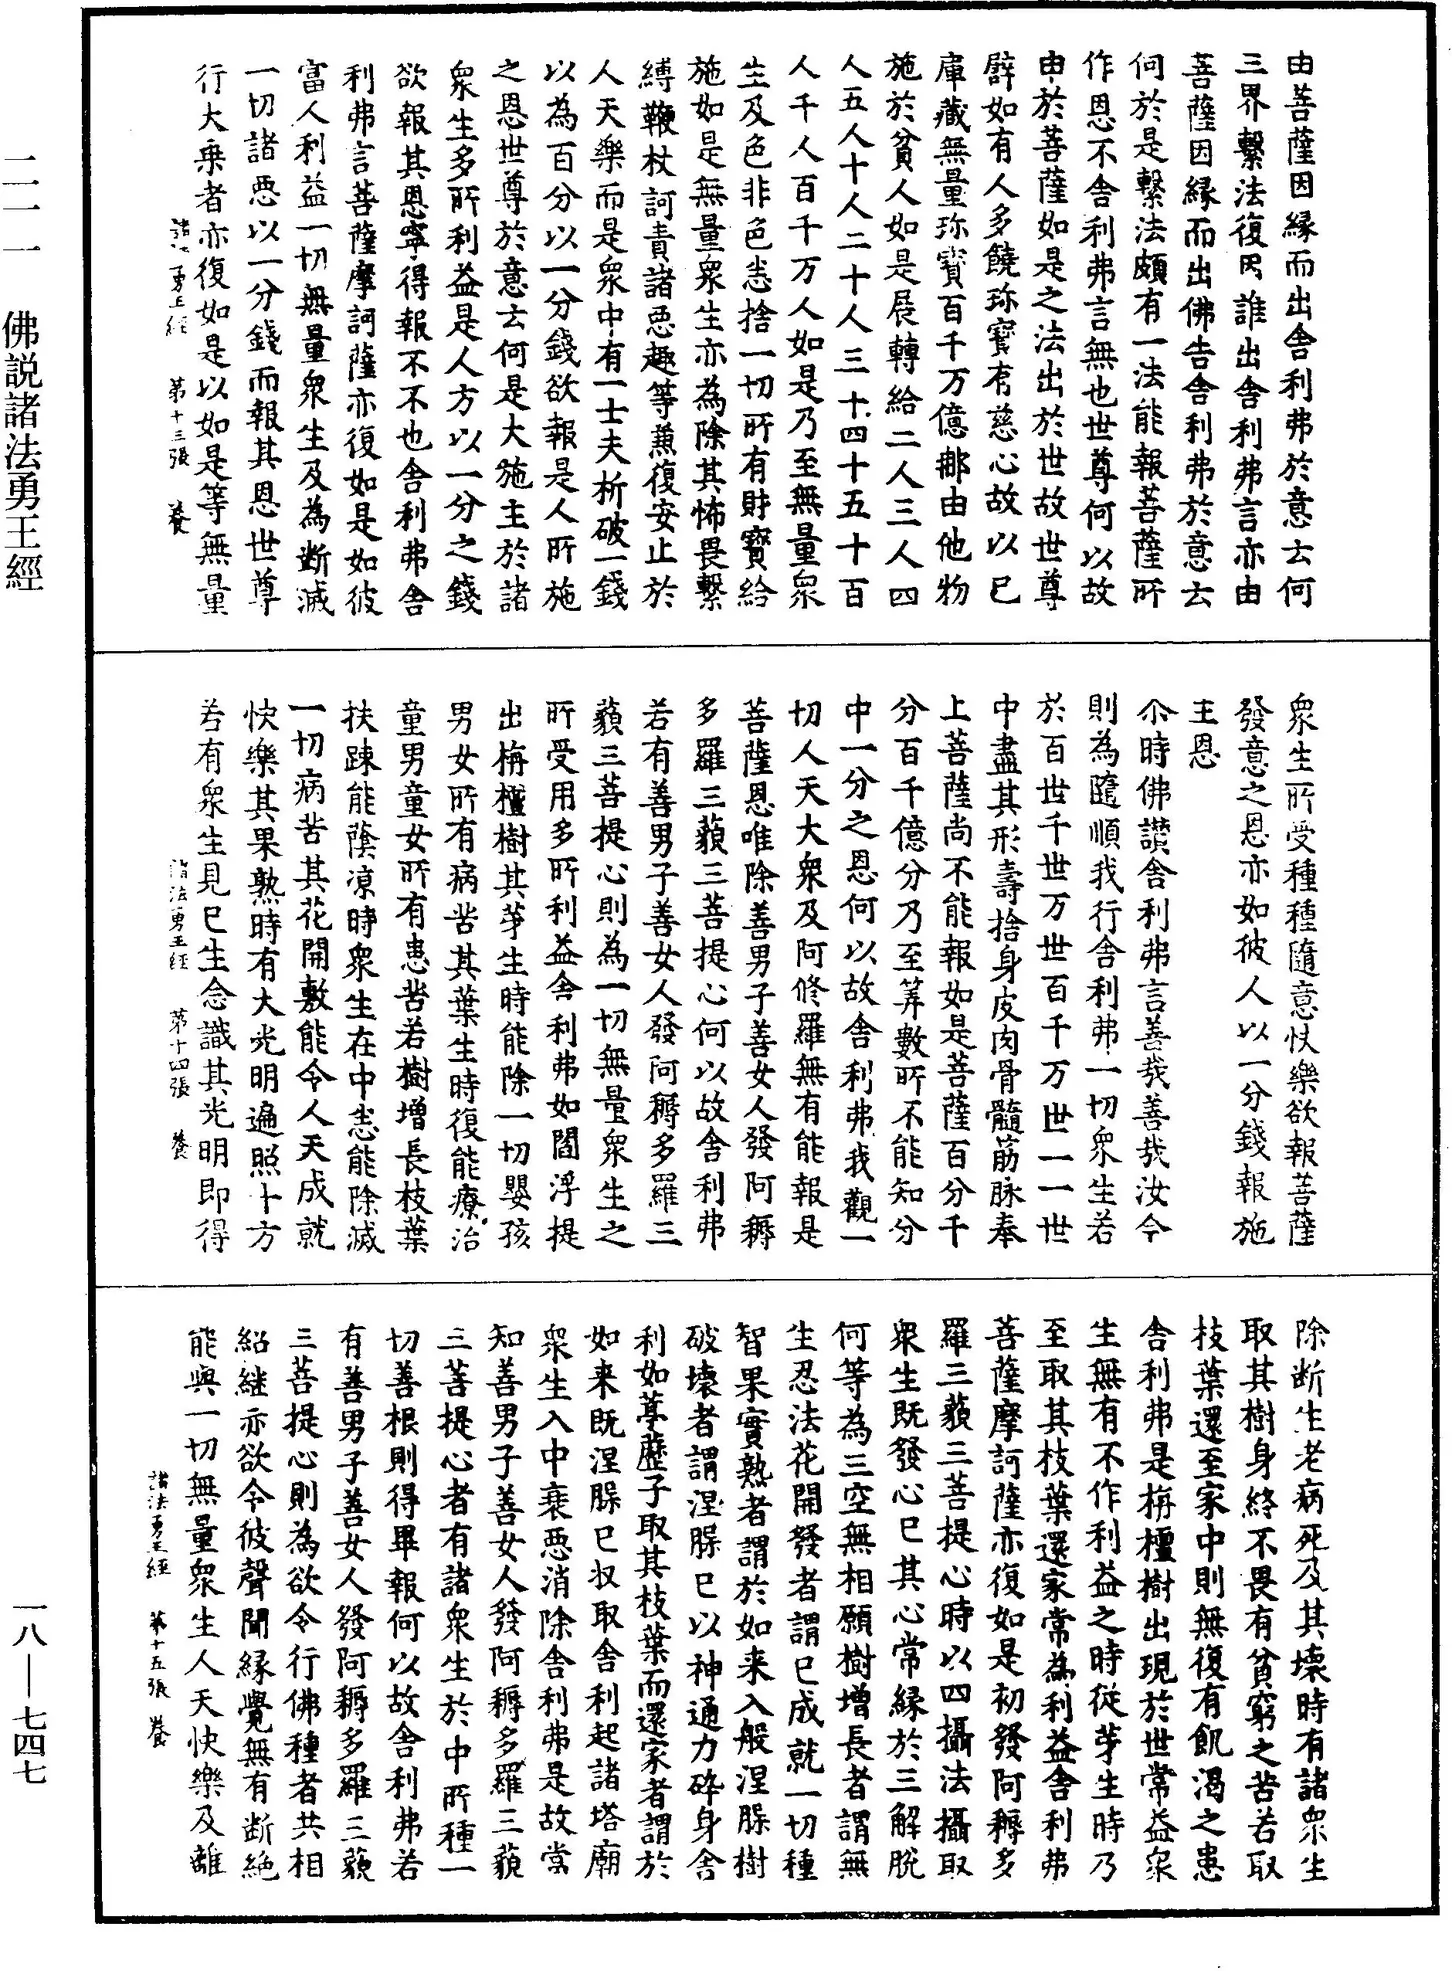 由菩薩因緣而出舍利弗於意云何
三界繫法復因誰出舍利弗言亦由
菩薩因緣而出佛告舍利弗於意云
何於是繫法頗有一法能報菩薩所
作恩不舍利弗言無也世尊何以故
由於菩薩如是之法出於世故世尊
譬如有人多饒珎寶有慈心故以已
庫藏無量珎寶百千万億那由他物
施於貧人如是展轉給二人三人四
人五人十人二十人三十四十五十百
人千人百千万人如是乃至無量衆
生及色非色悉捨一切所有財寶給
施如是無量衆生亦為除其怖畏繫
縛鞭杖訶責諸惡趣等𠔥復安止於
人天樂而是衆中有一士夫析破一錢
以為百分以一分錢欲報是人所施
之恩世尊於意云何是大施主於諸
衆生多所利益是人方以一分之錢
欲報其恩寧得報不不也舍利弗舍
利弗言菩薩摩訶薩亦復如是如彼
富人利益一切無量衆生及為斷滅
一切諸惡以一分錢而報其恩世尊
行大乘者亦復如是以如是等無量
諸法勇王經 第十三張 養
衆生所受種種隨意快樂欲報菩薩
發意之恩亦如彼人以一分錢報施
主恩
尒時佛讚舍利弗言善哉善哉汝今
則為隨順我行舍利弗一切衆生若
於百世千世万世百千万世一一世
中盡其形壽捨身皮肉骨髓筋脉奉
上菩薩尚不能報如是菩薩百分千
分百千億分乃至筭數所不能知分
中一分之恩何以故舍利弗我觀一
切人天大衆及阿修羅無有能報是
菩薩恩唯除善男子善女人發阿耨
多羅三藐三菩提心何以故舍利弗
若有善男子善女人發阿耨多羅三
藐三菩提心則為一切無量衆生之
所受用多所利益舍利弗如閻浮提
出栴檀樹其芽生時能除一切嬰孩
男女所有病苦其葉生時復能療治
童男童女所有患苦若樹增長枝葉
扶踈能蔭涼時衆生在中悉能除滅
一切病苦其花開敷能令人天成就
快樂其果熟時有大光明遍照十方
若有衆生見已生念識其光明即得
諸法勇王經 第十四張 養
除断生老病死及其壞時有諸衆生
取其樹身終不畏有貧窮之苦若取
枝葉還至家中則無復有飢渴之患
舍利弗是栴檀樹出現於世常益衆
生無有不作利益之時從芽生時乃
至取其枝葉還家常為利益舍利弗
菩薩摩訶薩亦復如是初發阿耨多
羅三藐三菩提心時以四攝法攝取
衆生既發心已其心常緣於三解脫
何等為三空無相願樹增長者謂無
生忍法花開發者謂已成就一切種
智果實熟者謂於如来入般涅槃樹
破壞者謂涅槃已以神通力碎身舍
利如葶藶子取其枝葉而還家者謂於
如来既涅槃已收取舍利起諸塔廟
衆生入中衰惡消除舍利弗是故當
知善男子善女人發阿耨多羅三藐
三菩提心者有諸衆生於中所種一
切善根則得畢報何以故舍利弗若
有善男子善女人發阿耨多羅三藐
三菩提心則為欲令行佛種者共相
紹繼亦欲令彼聲聞緣覺無有断絕
能與一切無量衆生人天快樂及離
諸法勇王經 第十五張 養
二一一一 佛説諸法勇王經 一八—七四七